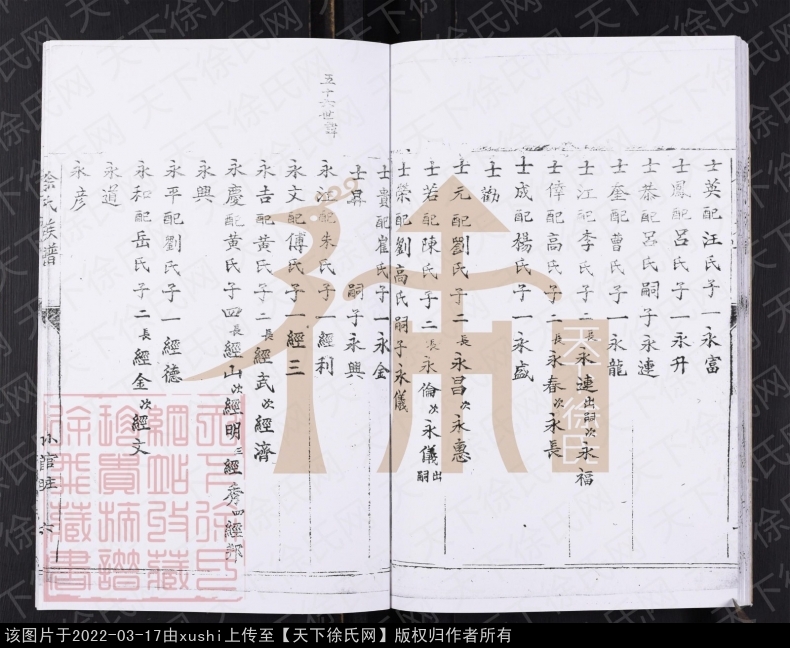 士英配汪氏子一永富
士鳳配呂氏子一永升
士恭配呂氏嗣子永連
士奎配曹氏子一永龍
士江配李氏子二長永連出嗣次永福
士偉配高氏子二長永春次永長
士成配楊氏子一永盛
士勸
士元配劉氏子二長永昌次永惠
士若配陳氏子二長永倫次永儀出嗣
士榮配劉高氏嗣子永儀
士貴配崔氏子一永金
士昇嗣子永興
五十六世諱
永江配朱氏子一經利
永文配傅氏子一經三
永吉配黃氏子二長經武次經濟
永慶配黃氏子四長經山次經明三經秀四經邦
永興
永平配劉氏子一經德
永和配岳氏子二長經金次經文
永道
永彥
徐氏族譜
六
天下徐氏
天下徐氏网
该图片于2022-03-17由xushi上传至【天下徐氏网】版权归作者所有